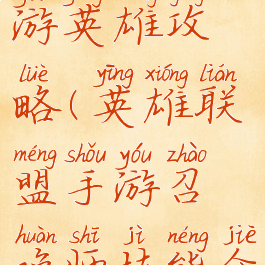 游英雄攻
lüè yīng xióng lián
略(英雄联
méng shǒu yóu zhào
盟手游召
huàn shī jì néng jiè
唤师技能介